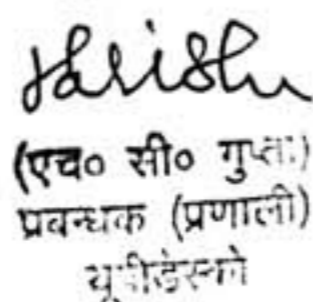 Harish
(एच० सी० गुप्ता)
प्रबन्धक (प्रणाली)
यूपीडेस्को